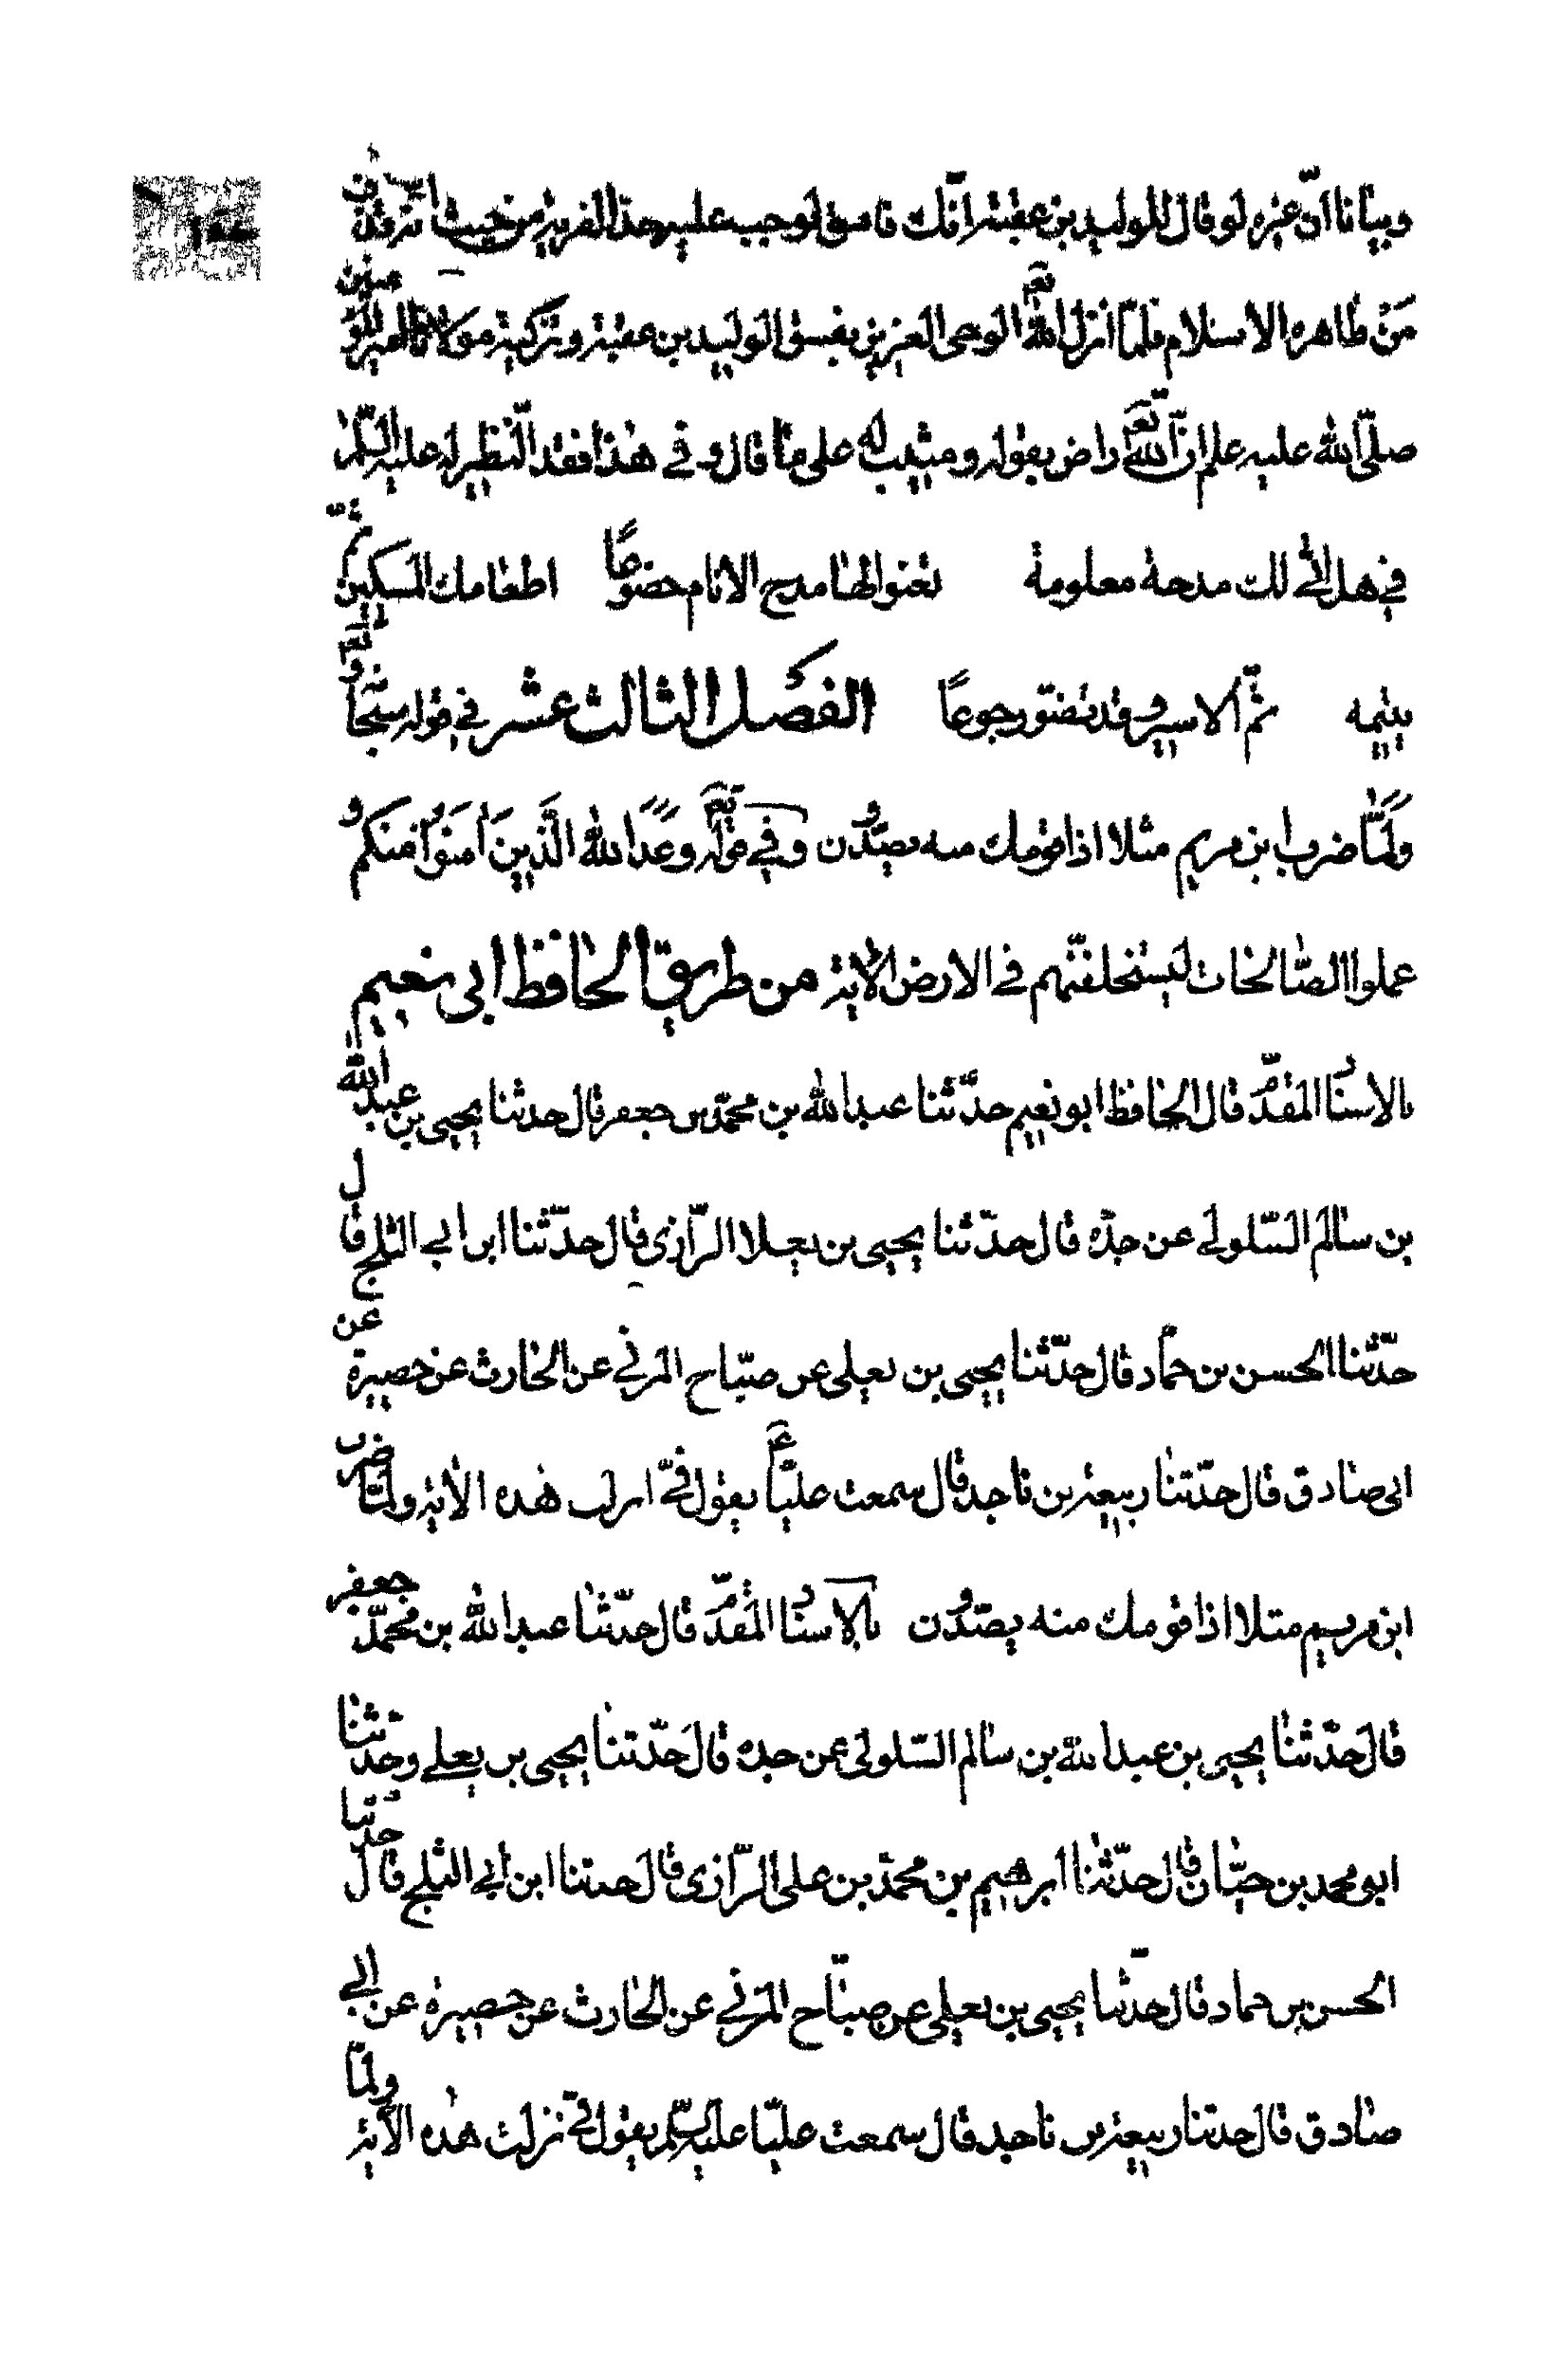 وبيانا انّ غيره لو قال للوليد بن عقبة انّك فاسق لوجب عليه حدّ الفرية من حيث انّه قذف
مَنْ ظاهره الاسلام فلمّا انزل الله تع الوحى العزيز بفسق الوليد بن عقبة وتزكية مولانا امير المؤمنين
صلّى الله عليه علم انّ الله تع راض بقوله ومثيب له على ما قال وفي هذا فقد النّظير له عليه السّلم
في هل اتى لك مدحة معلومة تعنو لها مدح الانام خضوعًا اطعامك المسكين ثمّ
يتيمه ثمّ الاسير وقد تضوّر جوعًا الفصل الثالث عشر في قوله سبحانه وتعالى
ولَمّا ضرب ابن مريم مثلا اذا قومك منه يصدّون وفي قوله تع وعَدَ الله الّذين اَمَنوا منكم و
عملوا الصّالحات ليستخلفنّهم في الارض الاية من طريق الحافظ ابى نعيم
بالاسناد المقدّم قال الحافظ ابو نعيم حدّثنا عبد الله بن محمّد بن جعفر قال حدثنا يحيى بن عبد الله
بن سالم السّلولي عن جدّه قال حدّثنا يحيى بن يعلا الرّازى قال حدّثنا ابن ابي الثلج قال
حدّثنا الحسن بن حمّاد قال حدّثنا يحيى بن يعلى عن صبّاح المزني عن الحارث عن حصيرة عن
ابى صادق قال حدّثنا ربيعة بن ناجد قال سمعت عليّا ع يقول فيّ انزلت هذه الاية ولمّا ضرب
ابن مريم مثلا اذا قومك منه يصدّون بالاسناد المقدّم قال حدّثنا عبد الله بن محمّد جعفر
قال حدّثنا يحيى بن عبد الله بن سالم السّلولى عن جده قال حدّثنا يحيى بن يعلي وحدّثنا
ابو محمد بن حبّان قال حدّثنا ابرهيم بن محمّد بن على الرّازى قال حدثنا ابن ابي الثلج قال حدثنا
الحسن بن حماد قال حدّثنا يحيى بن يعلى عن صبّاح المزني عن الحارث عن حصيرة عن ابي
صادق قال حدثنا ربيعة بن ناجد قال سمعت عليّا عليه السّلم يقول فيّ نزلت هذه الاية ولمّا